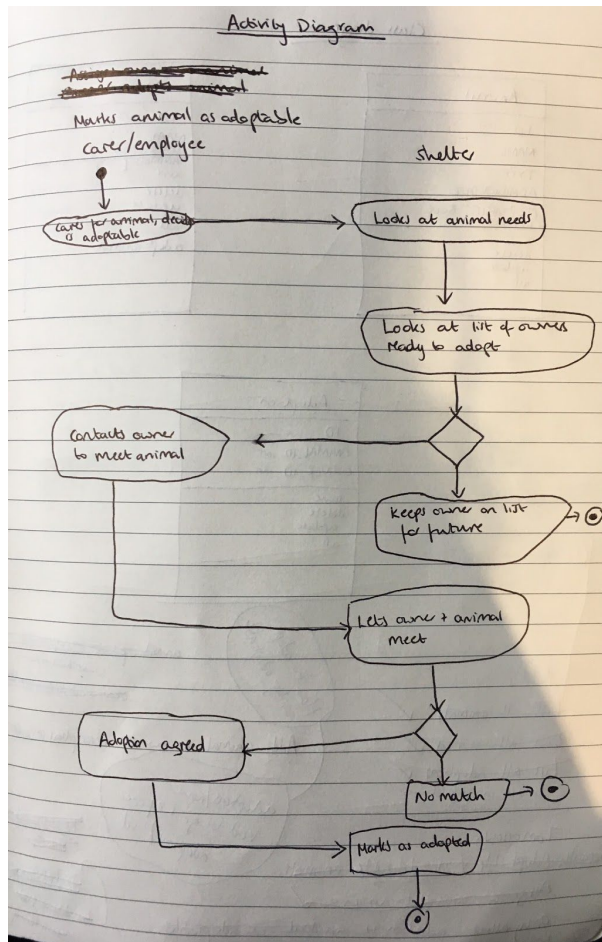 Activity Diagram
Marks animal as adoptable
carer/employee
shelter
cares for animal, decides
is adoptable
Looks at animal needs
Looks at list of owners
ready to adopt
Contacts owner
to meet animal
Keeps owner on list
for future
Lets owner + animal
meet
Adoption agreed
No match
Marks as adopted